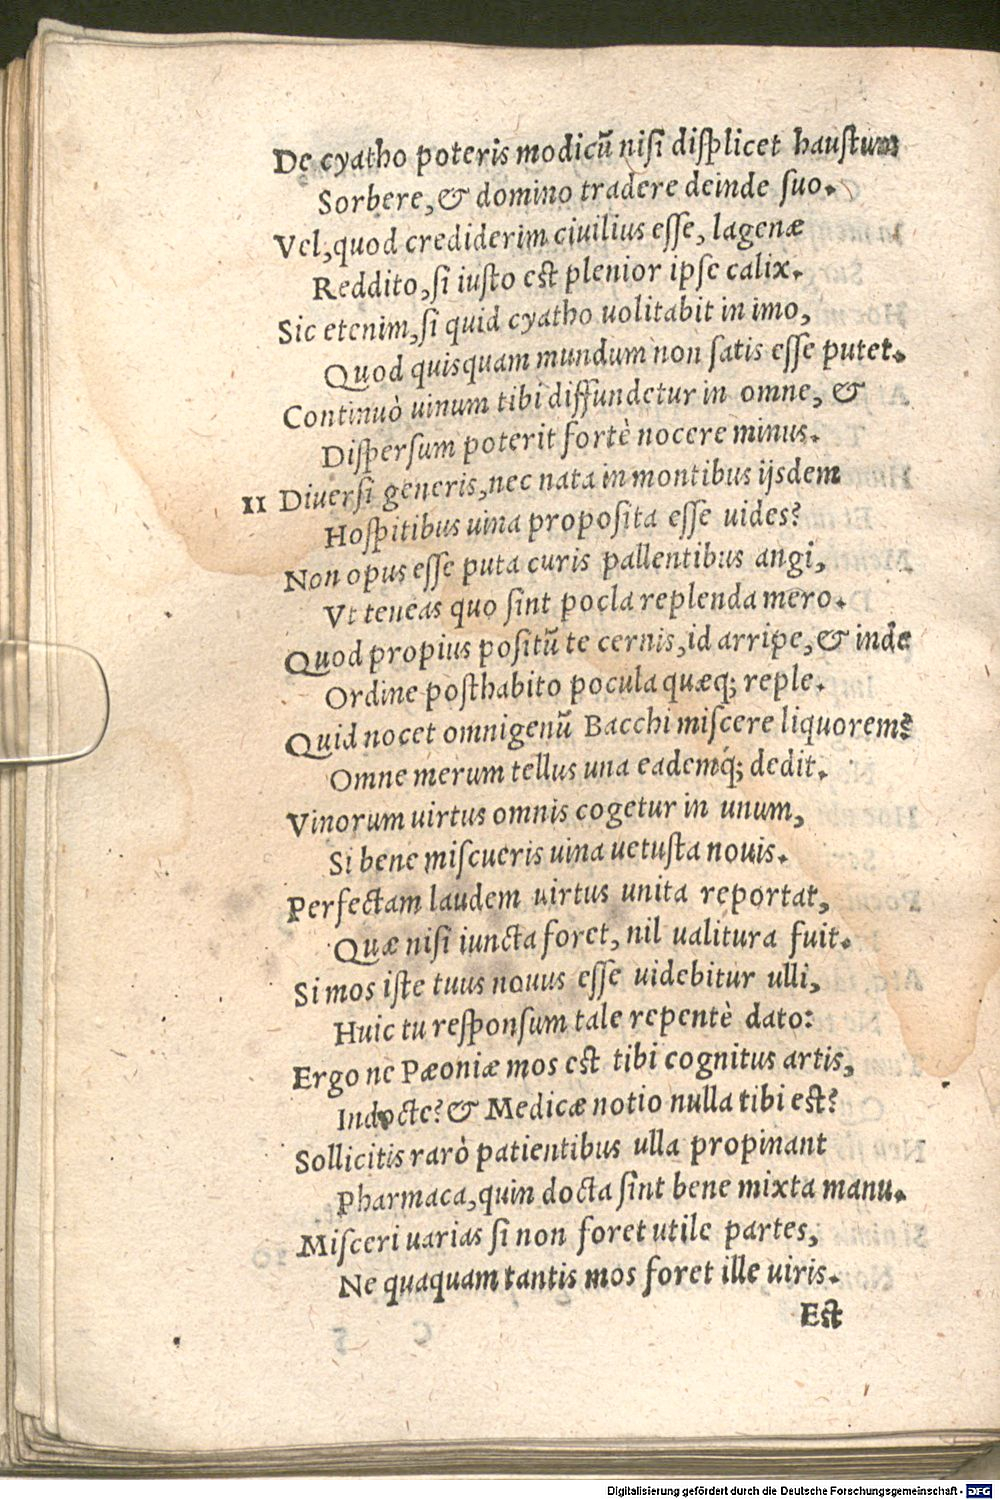 De cyatho poteris modicū nisi displicet haustum
Sorbere, & domino tradere deinde suo.
Vel, quod crediderim ciuilius esse, lagenæ
Reddito, si iusto est plenior ipse calix.
Sic etenim, si quid cyatho uolitabit in imo,
Quod quisquam mundum non satis esse putet.
Continuò uinum tibi diffundetur in omne, &
Dispersum poterit fortè nocere minus.
11 Diuersi generis, nec nata in montibus ijsdem
Hospitibus uina proposita esse uides?
Non opus esse puta curis pallentibus angi,
Vt teneas quo sint pocla replenda mero.
Quod propius positū te cernis, id arripe, & inde
Ordine posthabito pocula quæq; reple.
Quid nocet omnigenū Bacchi miscere liquorem?
Omne merum tellus una eademq́; dedit.
Vinorum uirtus omnis cogetur in unum,
Si bene miscueris uina uetusta nouis.
Perfectam laudem uirtus unita reportat,
Quæ nisi iuncta foret, nil ualitura fuit.
Si mos iste tuus nouus esse uidebitur ulli,
Huic tu responsum tale repentè dato:
Ergo ne Pæoniæ mos est tibi cognitus artis,
Indocte? & Medicæ notio nulla tibi est?
Sollicitis rarò patientibus ulla propinant
Pharmaca, quin docta sint bene mixta manu.
Misceri uarias si non foret utile partes,
Ne quaquam tantis mos foret ille uiris.
Est
Digitalisierung gefördert durch die Deutsche Forschungsgemeinschaft - DFG